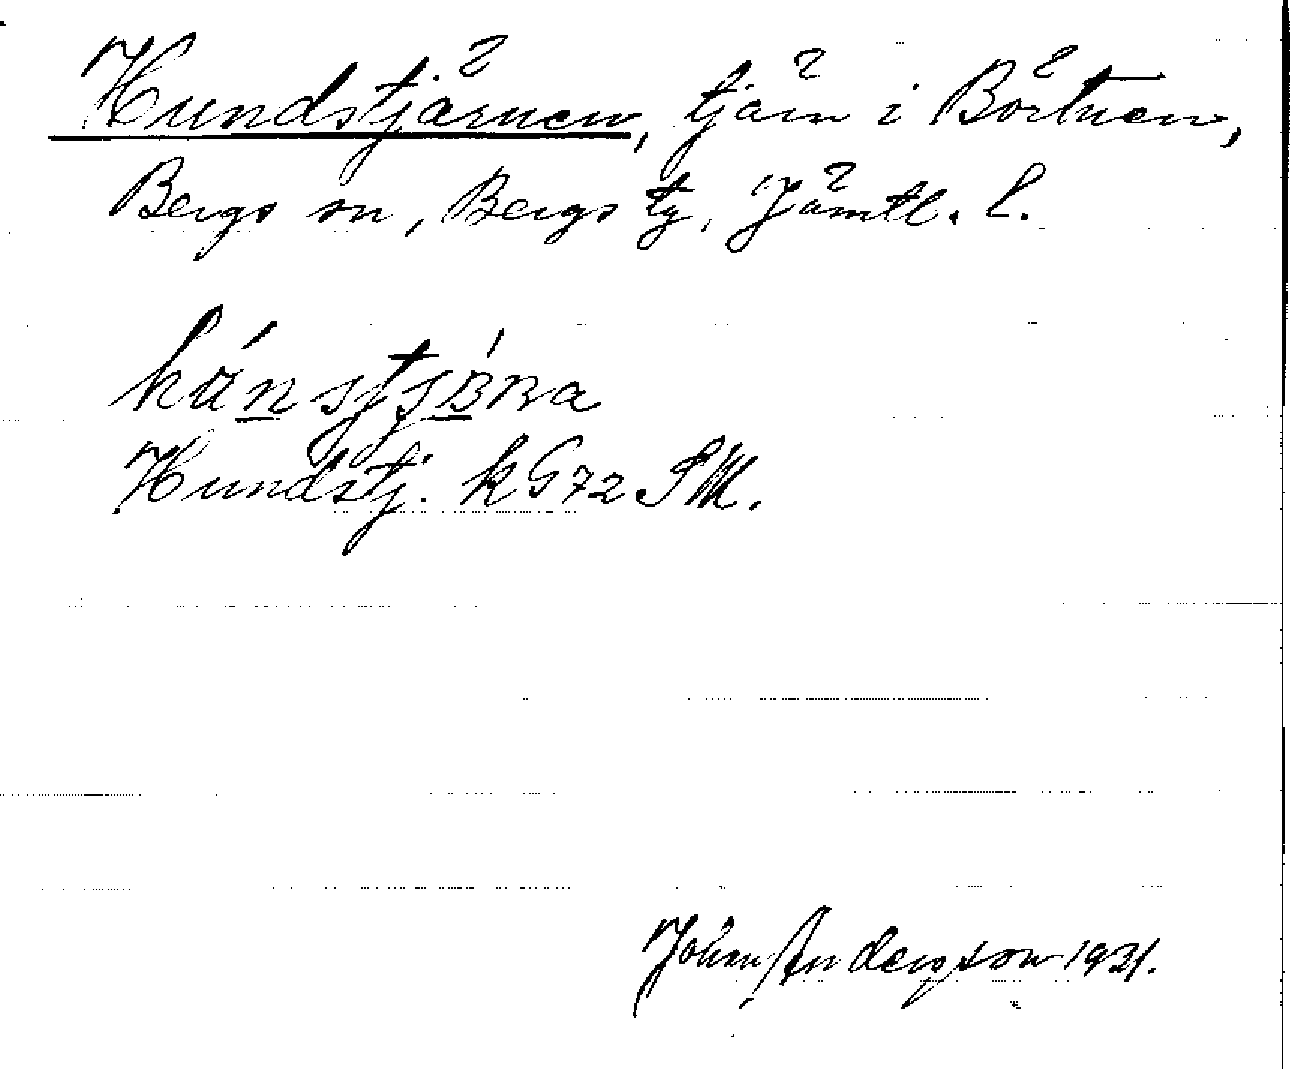 Hundstjärnen, tjärn i Börtnen,
Bergs sn, Bergs tg, Jämtl. l.
Hundstj. k G72 SM.
Johan Andersson 1921.